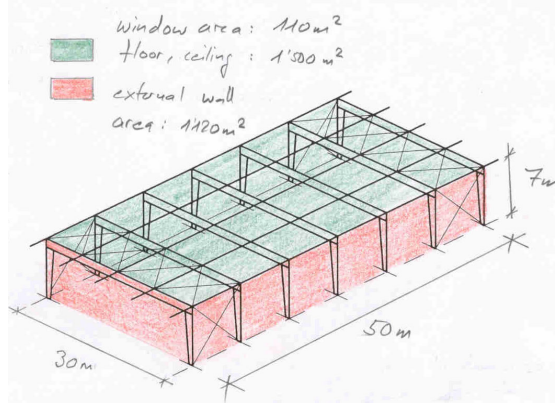 window area: 110m²
floor, ceiling: 1'500m²
external wall
area: 1'120m²
7m
50m
30m